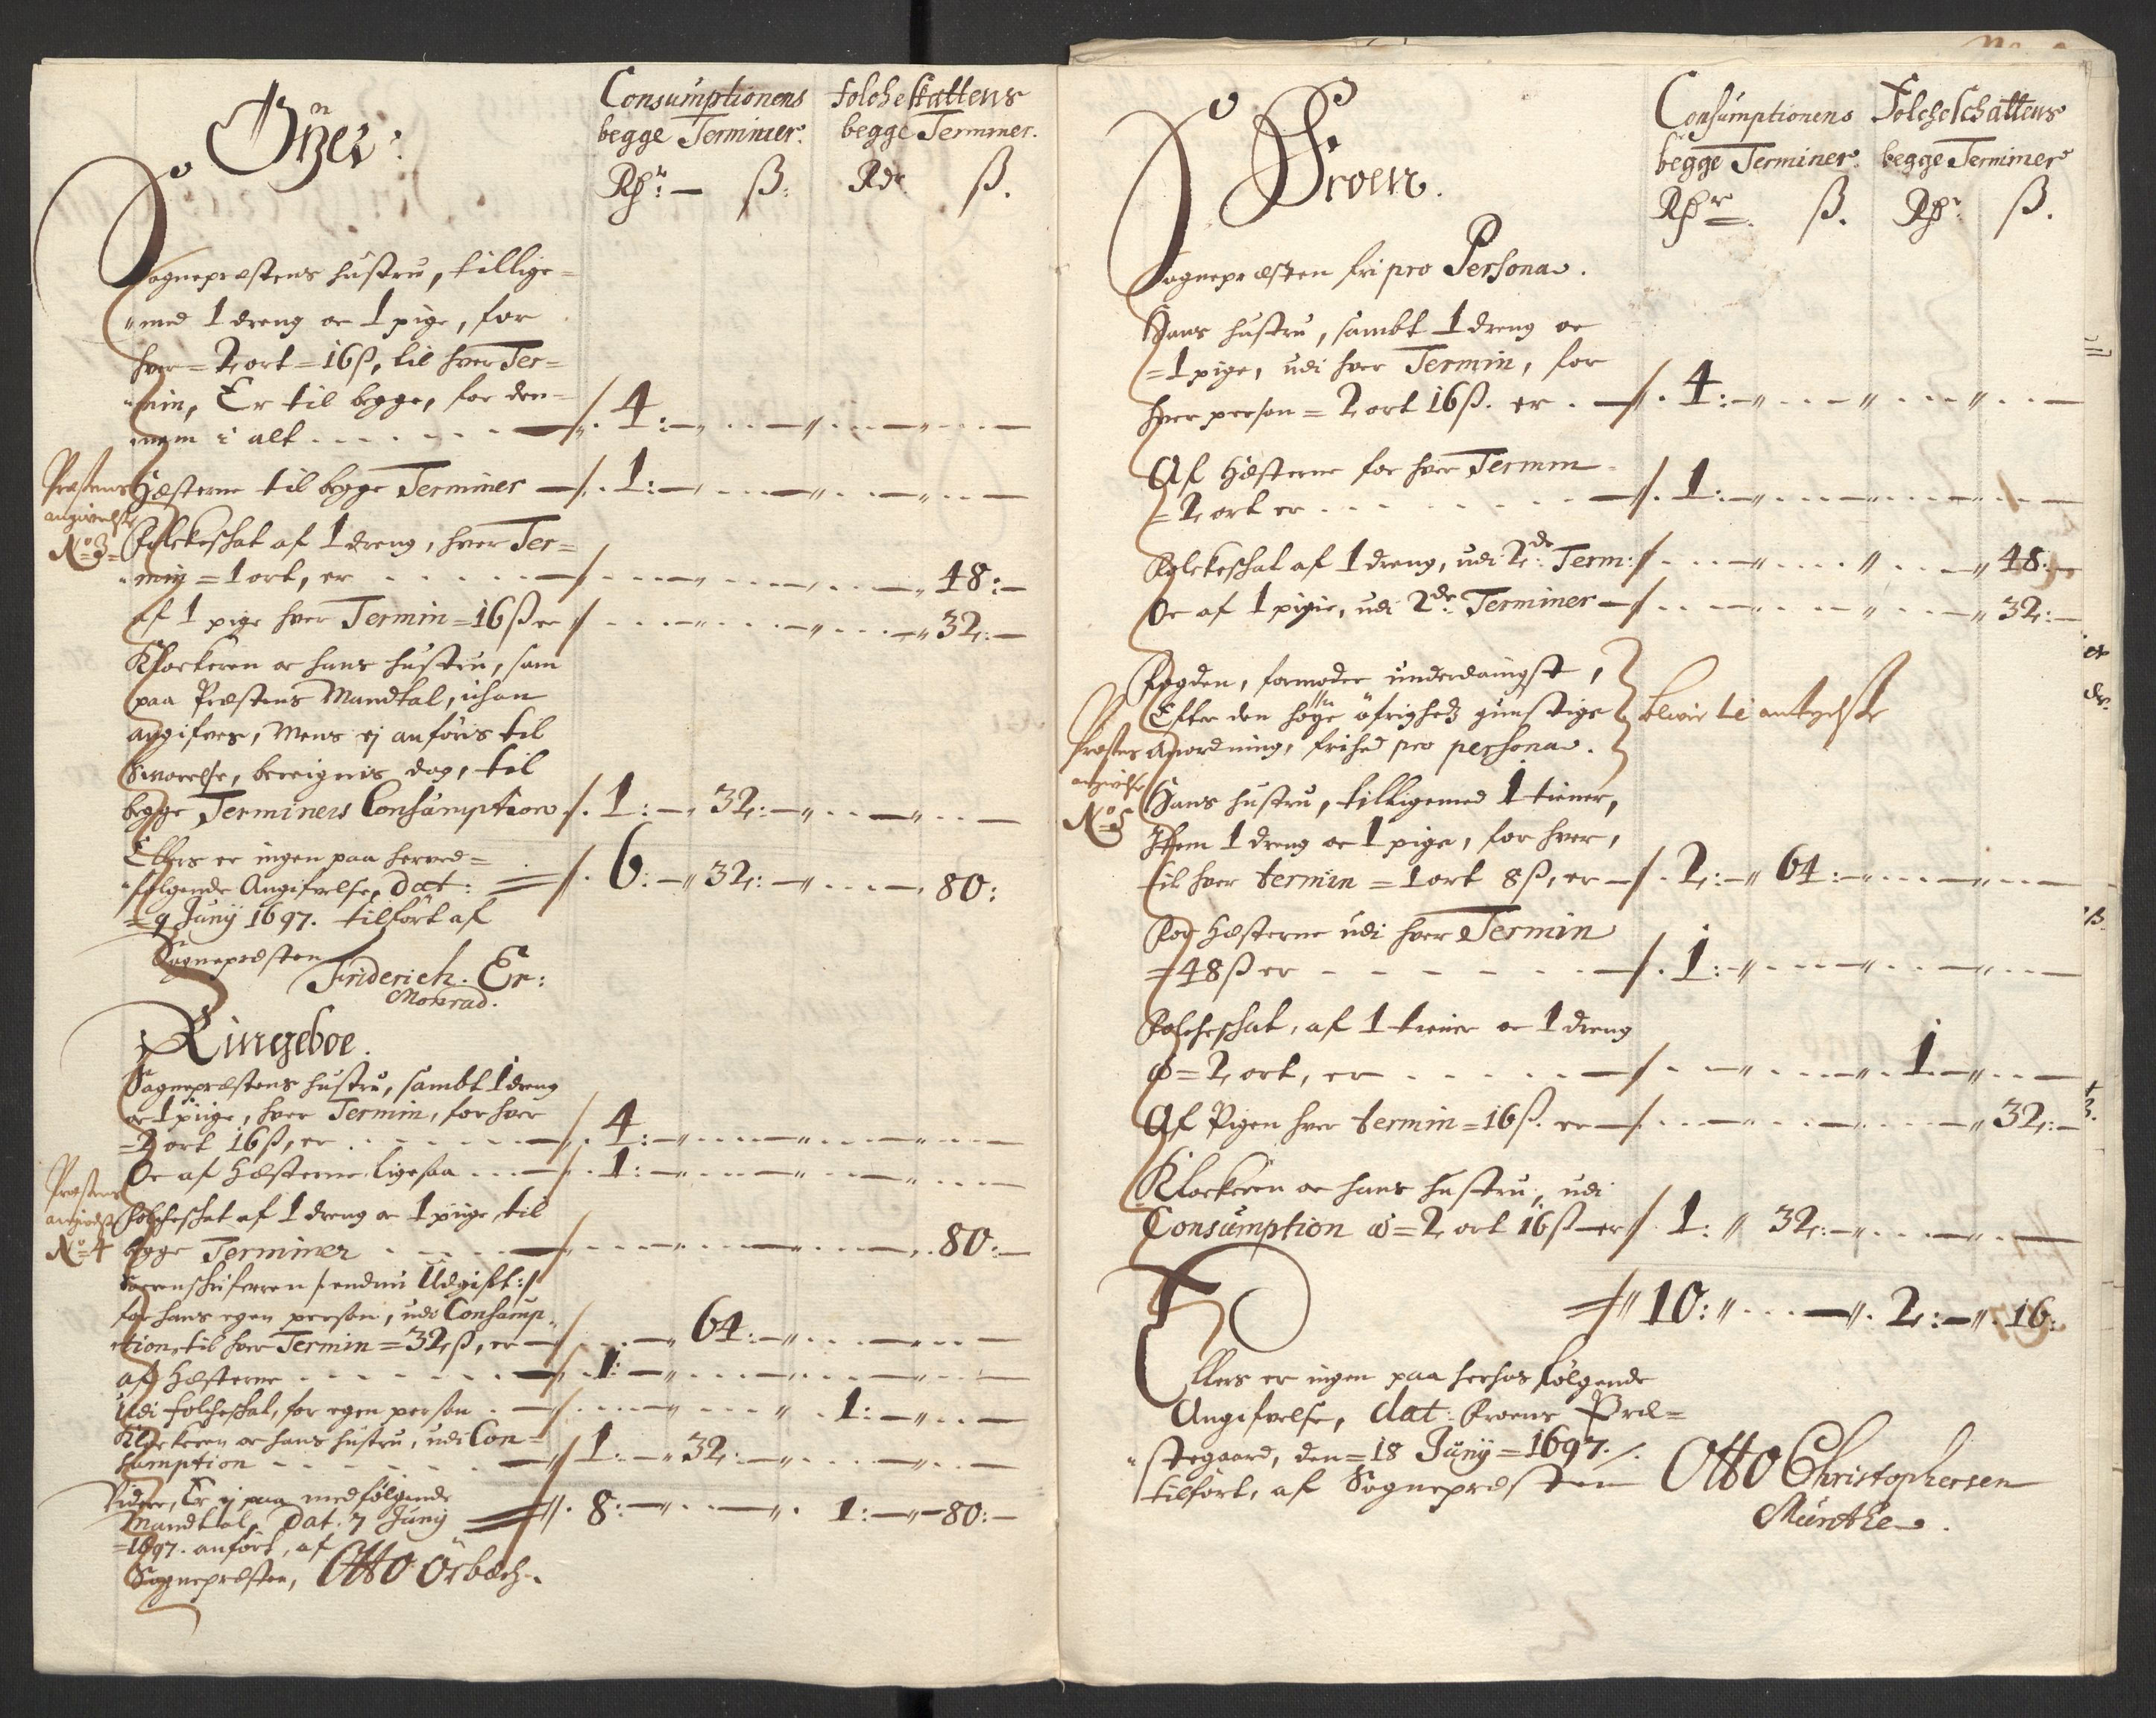 Consumptionens
begge Terminer.
folcheskattens
begge Terminer.
Rdr: ß: Rdr ß.
Øÿer:
Sognepræstens hustru, tillige-
med 1 dreng oc 1 pige, for
hver = 2 ort = 16 ß, til hver Ter-
min, Er til begge, for den-
nem i alt 4:
Hæsterne til begge Terminer 1:
Præstens
angivelse
No 3
Folckeskat af 1 dreng, hver Ter-
min = 1 ort, er 48:
af 1 pige hver Termin = 16 ß er 32:
Klockeren oc hans hustru, som
paa Præstens Mandtal, uhan
angifves, Mens ej anføris til
Svarelse, bereignis dog, til
begge Terminers Consumption 1: 32:
Ellers er ingen paa herved-
følgende Angifvelse, Dat: 6: 32: 80:
9 Junÿ 1697. tilført af
Sognepræsten
Friderich. Er:
Monrad.
Ringeboe.
Sognepræstens hustru, sambt 1 dreng
oc 1 piige, hver Termin, for hver
= 2 ort 16 ß, er 4:
Oc af Hæsterne ligesaa 1:
Præstens
angivelse
No 4
Folcheschat af 1 dreng oc 1 piige til
begge Terminer 80:
Sorenskriferen /: endnu Udgift:/
for hans egen person, udi Consump-
tion, til hver Termin = 32 ß, er 64:
af Hæsterne 1:
Udi folcheskat, for egen person 1:
Klockeren oc hans hustru, udi Con-
sumption 1: 32:
Videre, Er ej paa medfølgende
Mandtal, Dat. 7 Junÿ 8: 1: 80:
1697. anført, af
Sognepræsten, Otto Örbech.
Consumptionens
begge Terminer.
Folcheschattens
begge Terminer
Rdr ß. Rdr ß.
Froen.
Sognepræsten fri pro Persona.
Hans hustru, sambt 1 dreng oc
= 1 pige, udi hver Termin, for
hver person = 2 ort 16 ß. er 4:
Af Hæsterne for hver Termin
= 2 ort er 1:
Folckeskat af 1 dreng, udi 2de Term: 48:
Oc af 1 pigie, udi 2de Terminer 32:
Fogden, formoder underdanigst,
Efter den høye öfrigheds gunstige
Anordning, frihed pro persona.
blevir
Præstens
angivelse
No 5
Hans hustru, tilligemed 1 tiener,
Item 1 dreng oc 1 pige, for hver,
til hver termin = 1 ort 8 ß, er 2: 64:
For Hæsterne udi hver Termin
= 48 ß er 1:
Folcheschat, af 1 tiener oc 1 dreng
á = 2 ort, er 1
Af Pigen hver termin = 16 ß. er 32:
Klockeren oc hans hustru, udi
Consumption á = 2 ort 16 ß er 1: 32:
10: 2: 16:
Ellers er ingen paa herhos følgende
Angifvelse, dat: Froens Præ-
stegaard, den = 18 Junÿ = 1697.
tilført, af Sognepræsten Otto Christophersen
Munthe.